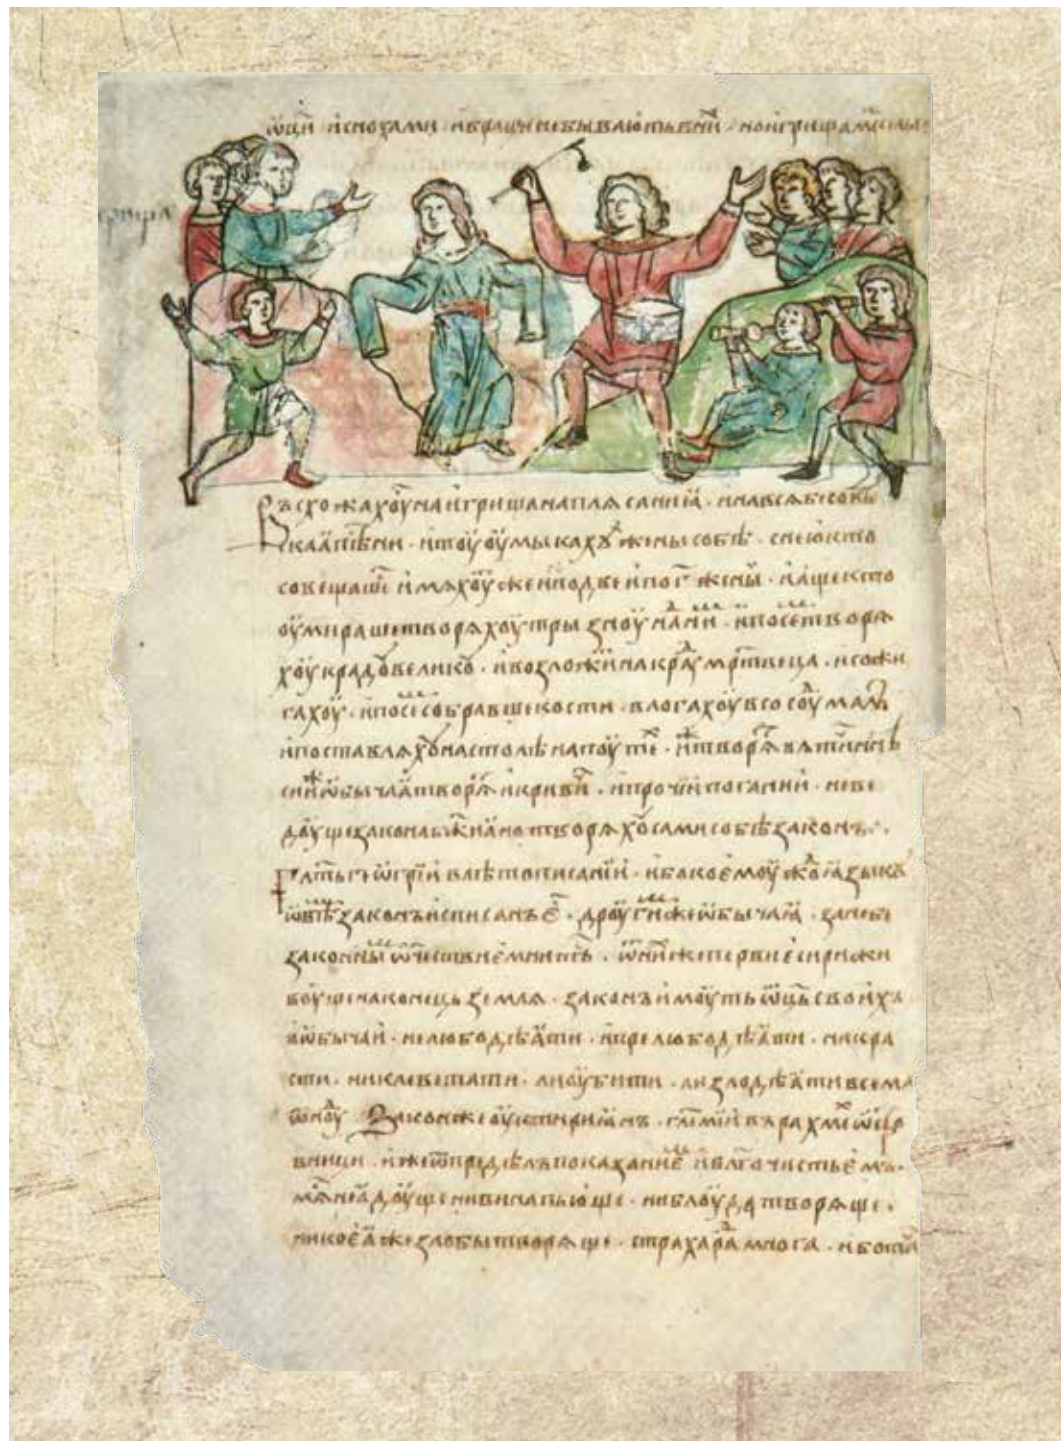 ѿц҃и и снохами и браци не бываютъ в ни но игрища ме селы
Въсхожахоу на игрища на плясаниꙗ · и на вся бесовь
скаꙗ песни · и тоу оумыкахꙋ жены собѣ · с нею кто
совещашес имяхоу же и по две и по г҃ жены · и аще кто
оумираше творяхоу тризноу на ни · и по се творя
хоу крадоу великоу · и возложи на крадоу мр҃твеца · и сожи
гахоу · и по се собравше кости · влогахоу в сосоу малъ
и поставляхоу на столпѣ на поуте · иж творят вятичи ннѣ
сии ж ѡбычаи творяхоу и кривичи · и прочии погании · не ве
доуще закона бж҃иа но творяхоу сами собѣ законъ ·
Гл҃ть гѡргии в лѣтописании · ибо коемоуждо ꙗзыкоу
ѡвѣ законъ исписанъ е · дроугим же ѡбычаꙗ · зане
законны ѿчествие мнитсѧ · ѿ ни же первие сирии жи
воуще на конець земля · законъ имоуть ѿць своихъ
ѡбычаи · не любодѣати · и прелюбодѣати · ни кра
сти · ни клеветати · ли оубити · ли зло дѣати весма
ѿноу Закон же оу ктириꙗнъ · гл҃емии върахмане ѡстро
вници · иже ѿ прадѣдъ показание и благочестьемъ
мяс не ꙗдоуще ни вина пьюще · ни блоуда творяще ·
никоеꙗ же злобы творяще · страха ради многа · ибо та